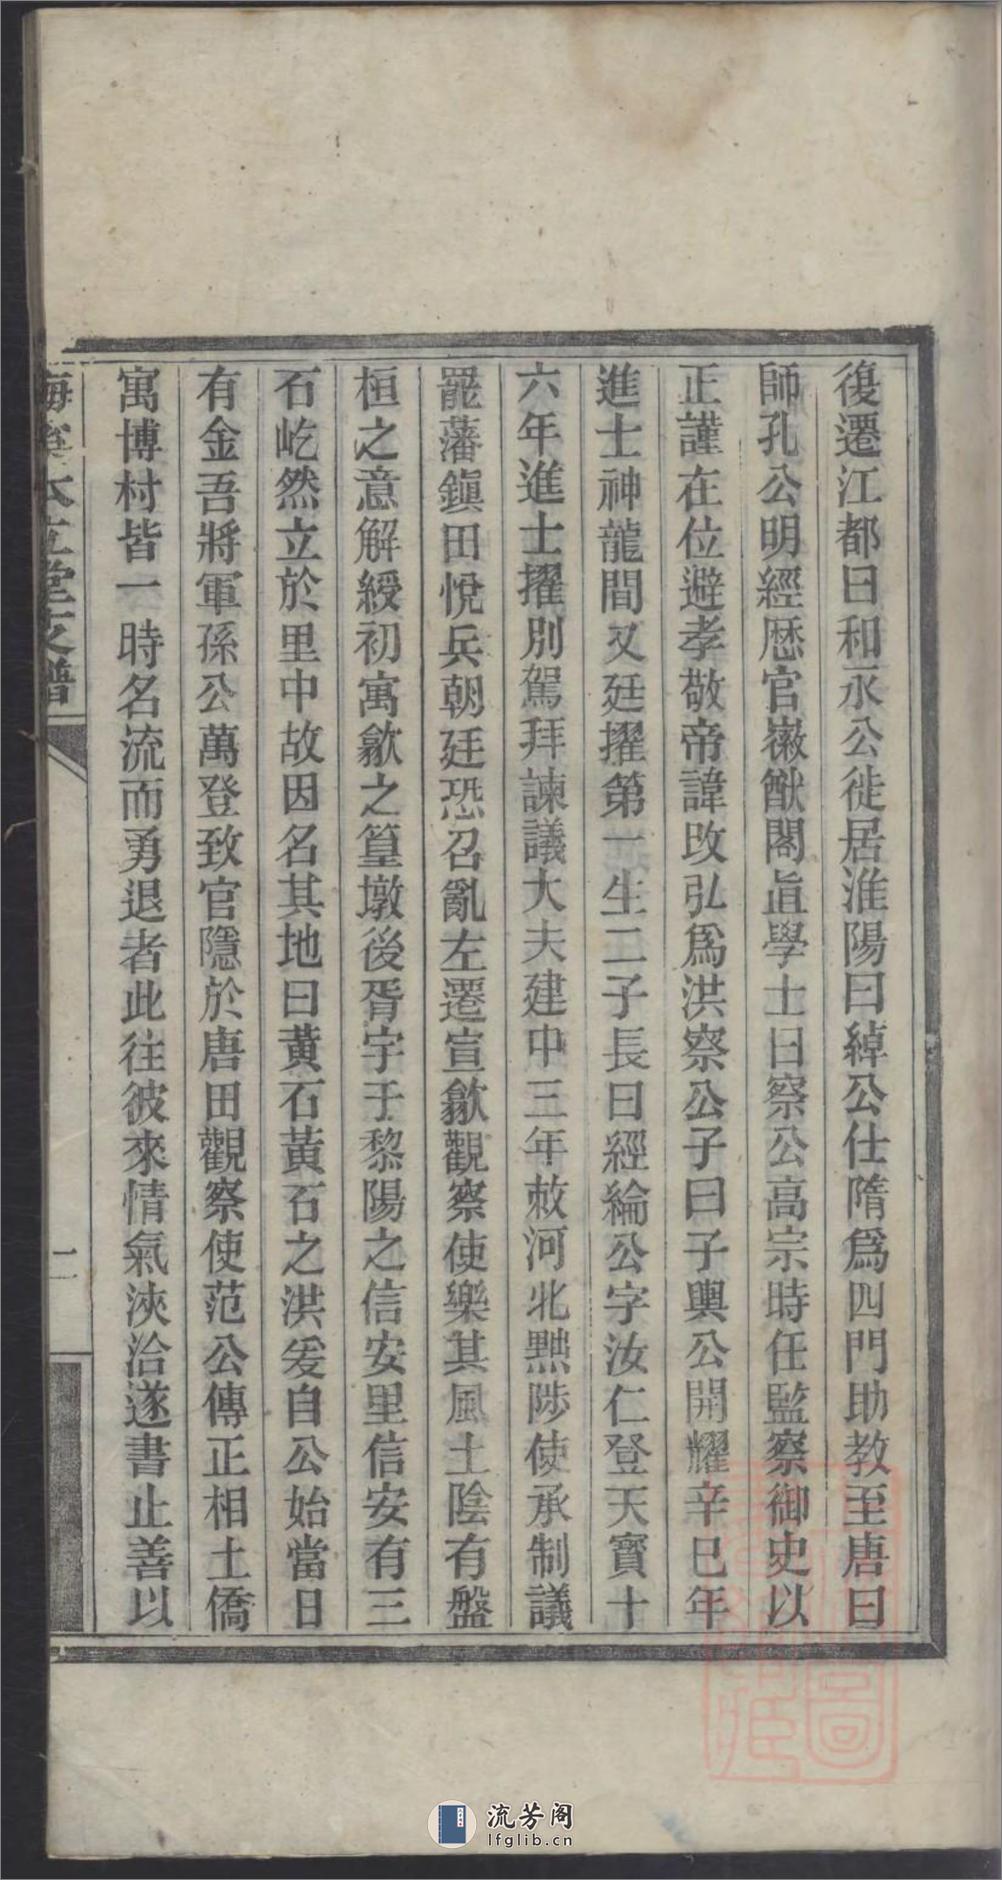 復遷江都曰和永公徙居淮陽曰綽公仕隋爲四門助教至唐曰
師孔公明經歷官嶶猷閣直學士曰察公高宗時任監察御史以
正謹在位避孝敬帝諱改弘爲洪察公子曰子輿公開耀辛巳年
進士神龍間又廷擢第一生二子長曰經綸公字汝仁登天寶十
六年進士擢別駕拜諫議大夫建中三年敕河北黜陟使承制議
罷藩鎮田悅兵朝廷恐召亂左遷宣歙觀察使樂其風土陰有盤
桓之意解綬初寓歙之篁墩後胥宇于黎陽之信安里信安有三
石屹然立於里中故因名其地曰黃石黃石之洪爰自公始當日
有金吾將軍孫公萬登致官隱於唐田觀察使范公傳正相土僑
寓博村皆一時名流而勇退者此往彼來情氣浹洽遂書止善以
堂支譜
二
流芳阁
lfglib.cn
圖